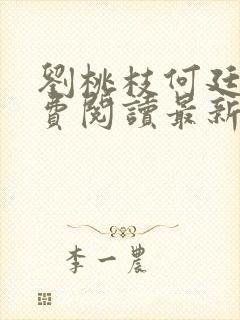 劉桃枝何廷
費閱讀最新
李一農